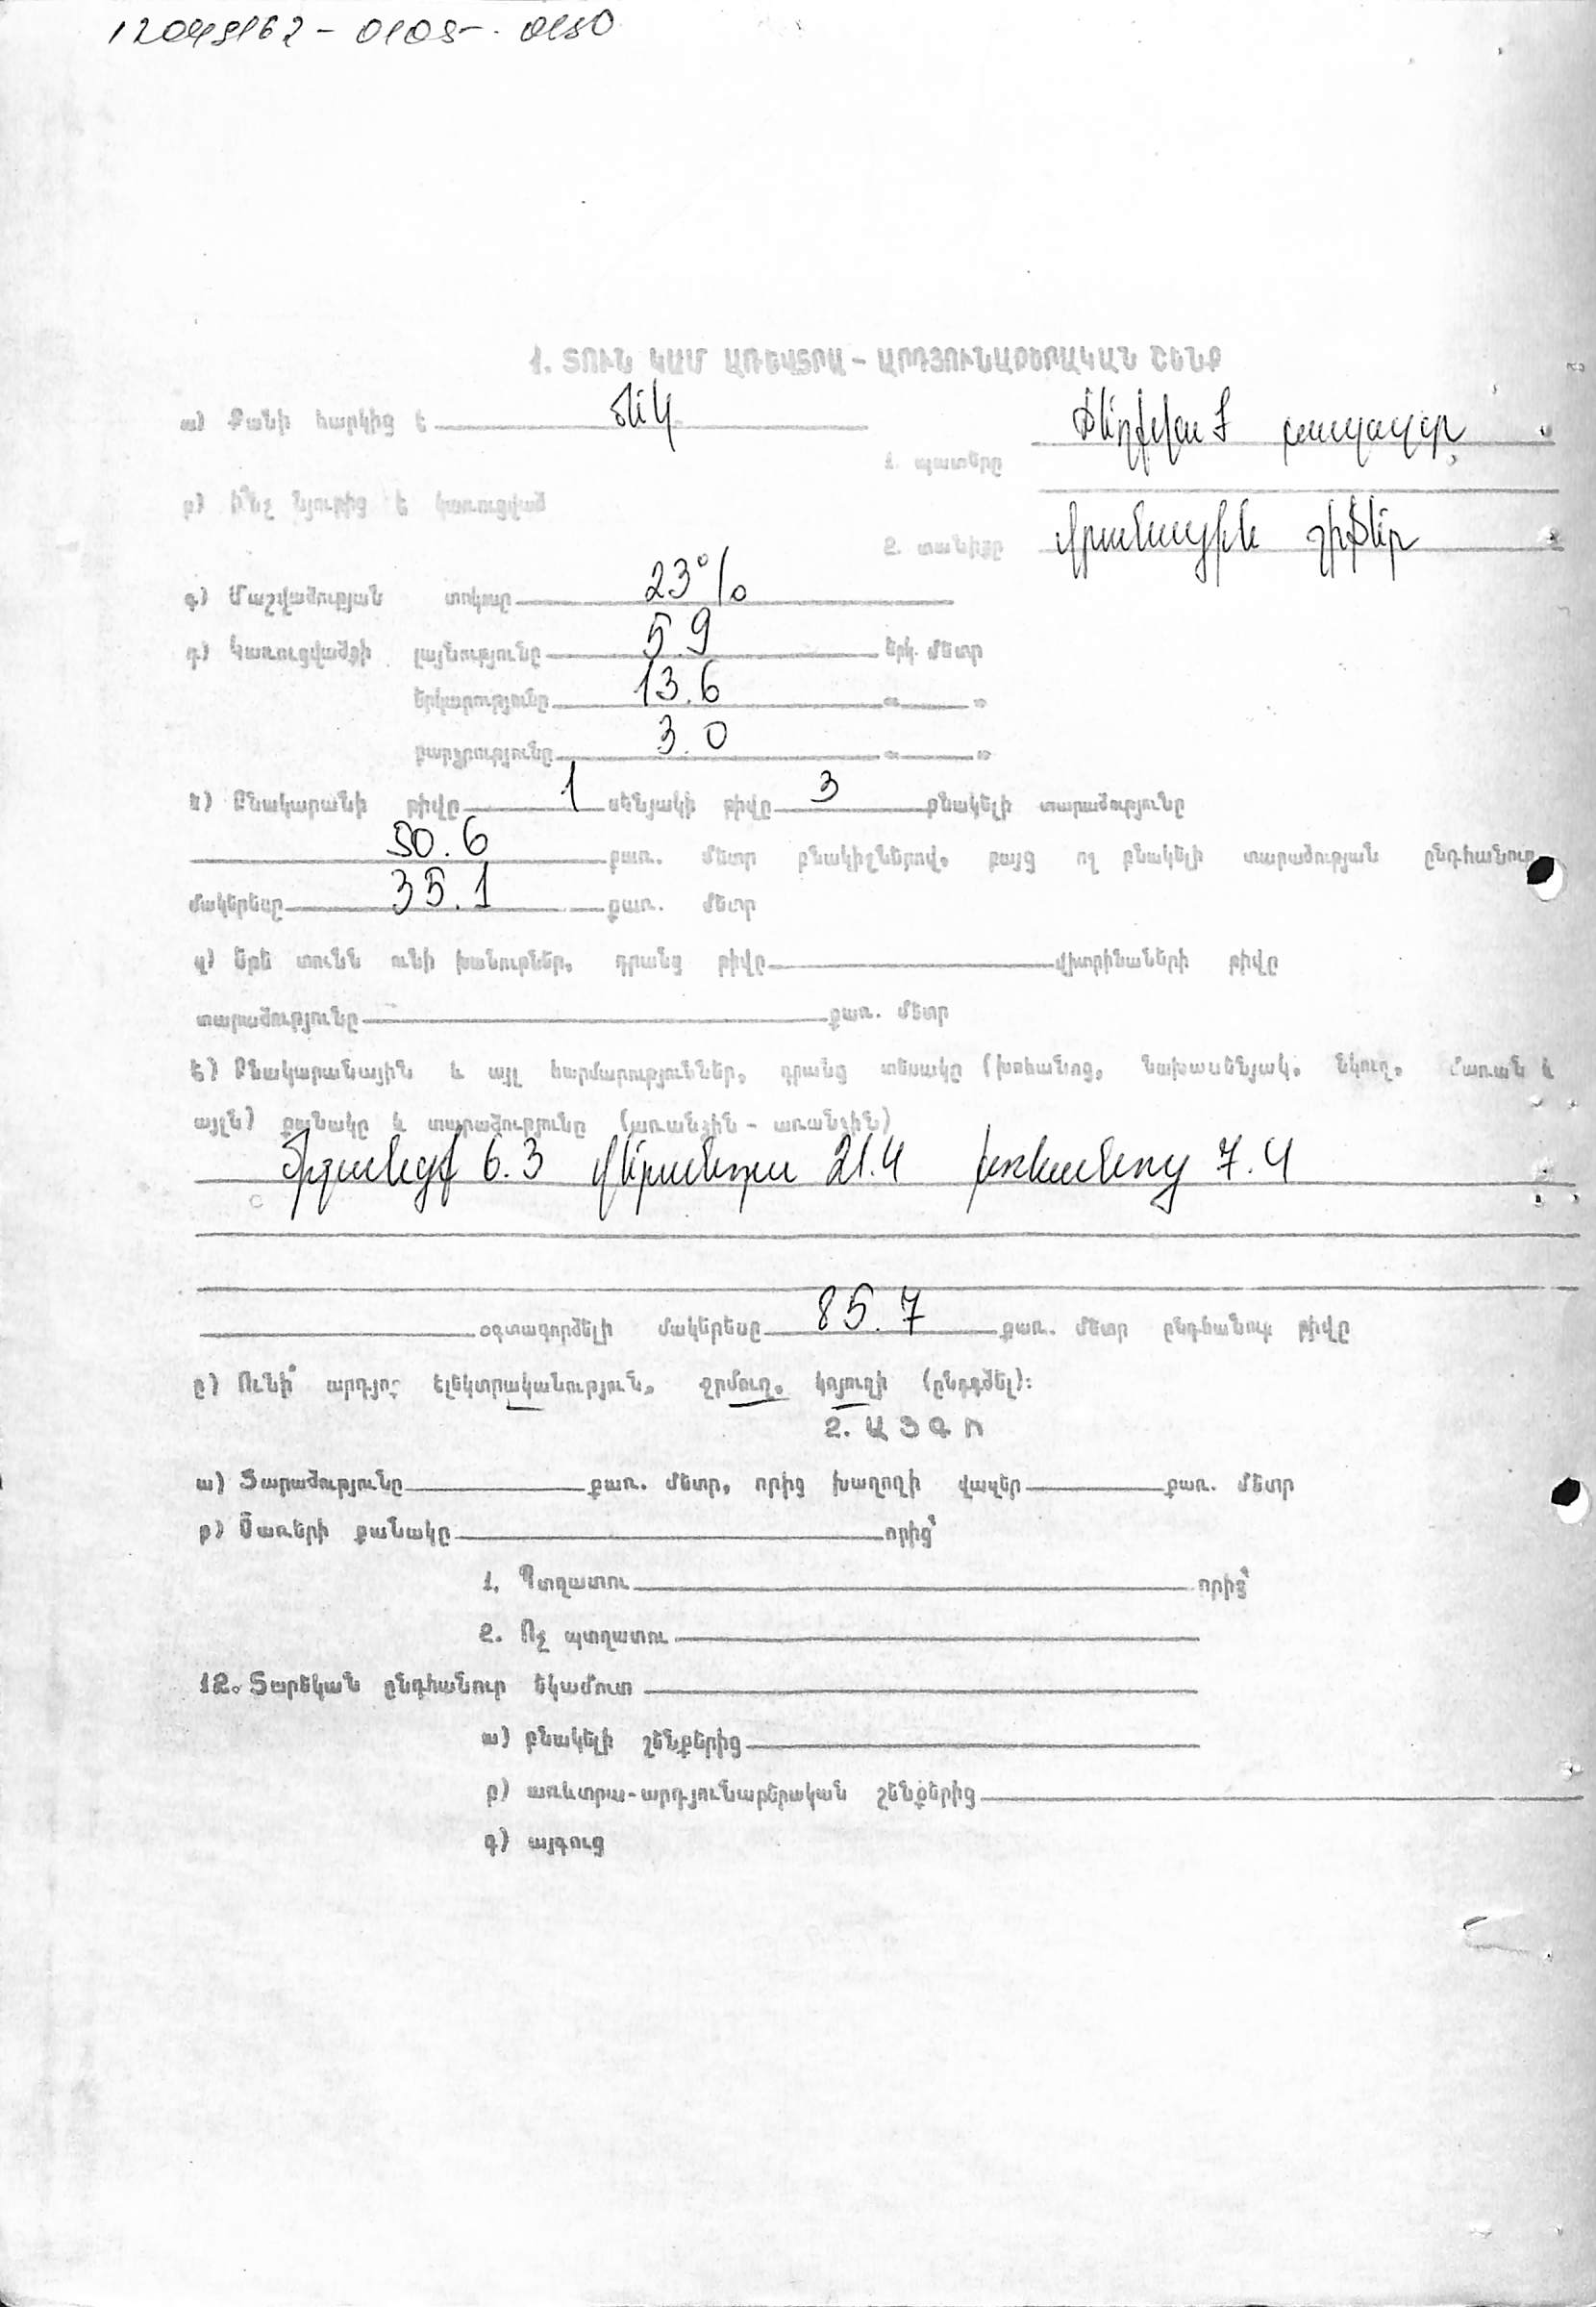 12048162 - 0108 - 0180
1. ՏՈՒՆ ԿԱՄ ԱՌԵՎՏՐԱ - ԱՐԴՅՈՒՆԱԲԵՐԱԿԱՆ ՇԵՆՔ
ա) Քանի հարկից է մեկ
1. պատերը քար
բ) ի՞նչ նյութից է կառուցված
2. տանիքը փայտածածկ շիֆեր
գ) Մաշվածության տոկոսը 23%
դ) Կառուցվածքի լայնությունը 5.9 երկ. մետր
երկարությունը 13.6 « »
բարձրությունը 3.0 « »
ե) Բնակարանի թիվը 1 սենյակի թիվը 3 բնակելի տարածությունը
50.6 քառ. մետր բնակիչներով, բայց ոչ բնակելի տարածության ընդհանուր
մակերեսը 35.1 քառ. մետր
զ) Եթե տունն ունի խանութներ, դրանց թիվը վիտրինաների թիվը
տարածությունը քառ. մետր
է) Բնակարանային և այլ հարմարություններ, դրանց տեսակը (խոհանոց, նախասենյակ, նկուղ, մառան և
այլն) քանակը և տարածությունը (առանձին - առանձին)
6.3 վերանդա 21.4 խոհանոց 7.4
օգտագործելի մակերեսը 85.7 քառ. մետր ընդհանուր թիվը
ը) Ունի՞ արդյոք էլեկտրականություն, ջրմուղ, կոյուղի (ընդգծել):
2. ԱՅԳԻ
ա) Տարածությունը քառ. մետր, որից խաղողի վազեր քառ. մետր
բ) Ծառերի քանակը որից՝
1. Պտղատու որից՝
2. Ոչ պտղատու
12. Տարեկան ընդհանուր եկամուտ
ա) բնակելի շենքերից
բ) առևտրա-արդյունաբերական շենքերից
գ) այգուց